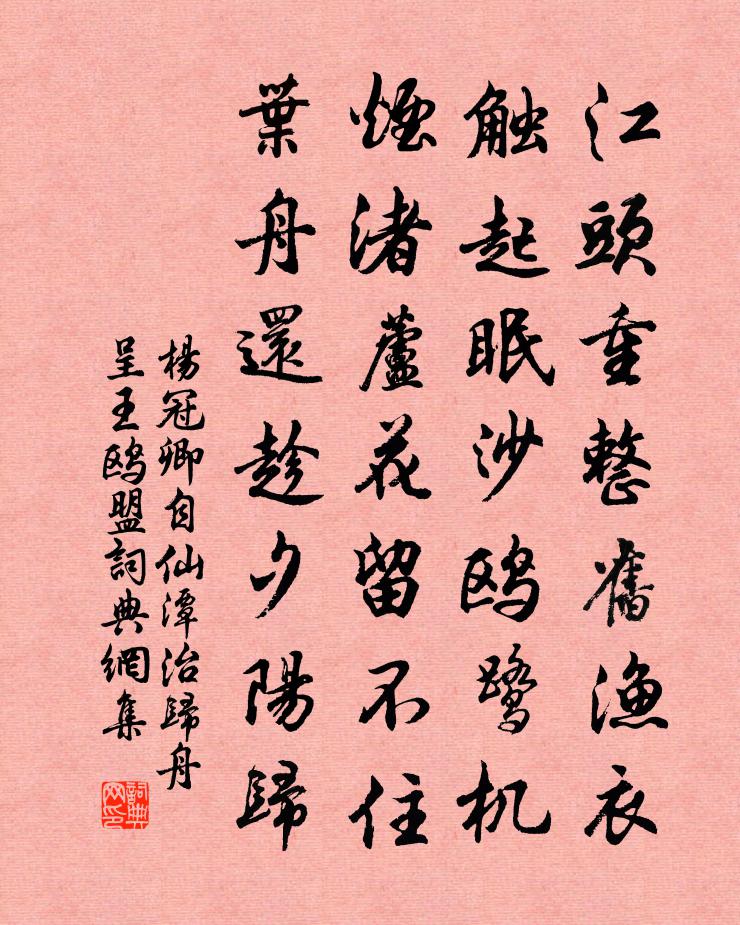 江頭重整舊漁衣
触起眠沙鸥鹭机
煙渚蘆花留不住
葉舟還趁夕陽歸
楊冠卿自仙潭治歸舟
呈王鸥盟詞典網集
詞典
网印